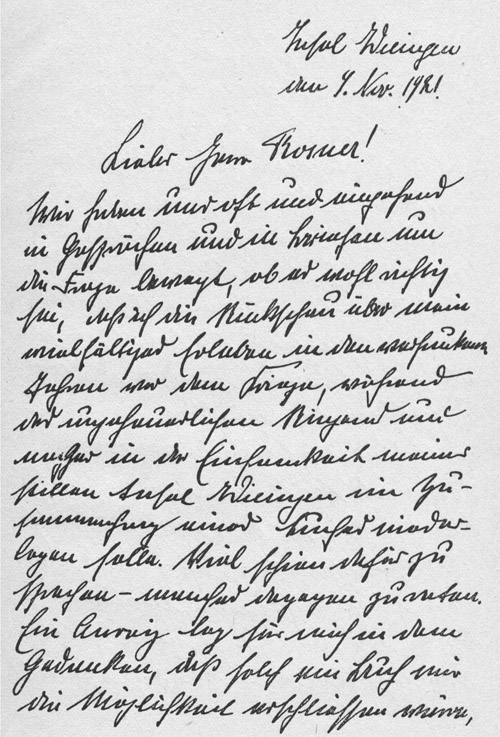 Insel Wieringen
den 4. Nov. 1921.
Lieber Herr Rosner!
Wir haben uns oft und eingehend
in Gesprächen und in Briefen um
die Frage bewegt, ob es wohl richtig
sei, daß ich die Rückschau über mein
vielfältiges Erleben in den versunkenen
Jahren vor dem Kriege, während
des ungeheuerlichen Ringens und
nachher in der Einsamkeit meiner
stillen Insel Wieringen im Zu-
sammenhang eines Buches nieder-
legen solle. Viel schien dafür zu
sprechen – manches dagegen zu raten.
Ein Anreiz lag für mich in dem
Gedanken, daß solch ein Buch mir
die Möglichkeit erschliessen würde,